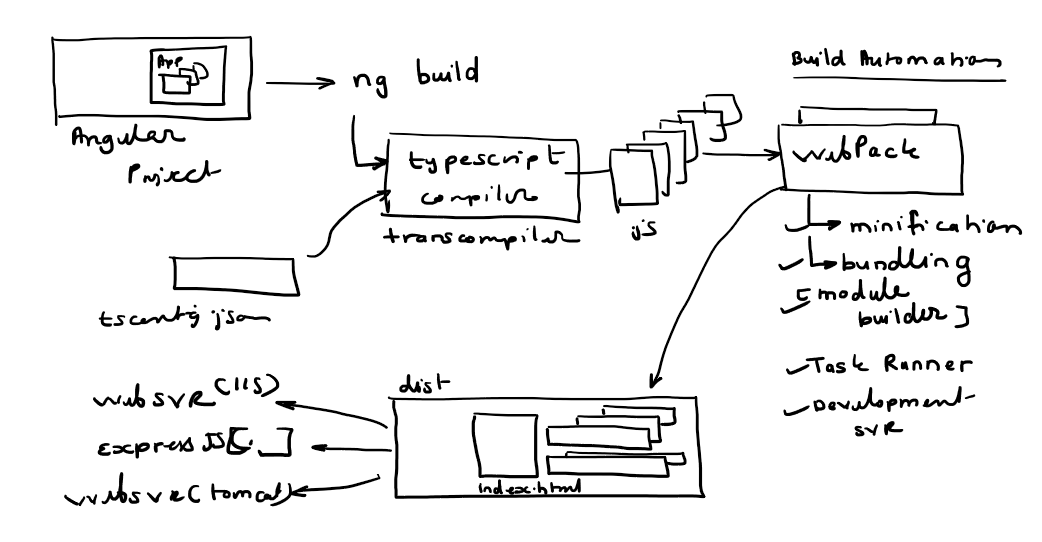 App
Angular
Project
ng build
typescript
compiler
transcompiler
tsconfig.json
js
Build Automation
webPack
minification
bundling
[module
builder]
Task Runner
Development
SVR
dist
index.html
webSVR (IIS)
express JS
websvr (tomcat)